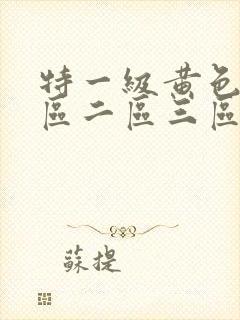 特一級黃色
區二區三區
蘇提